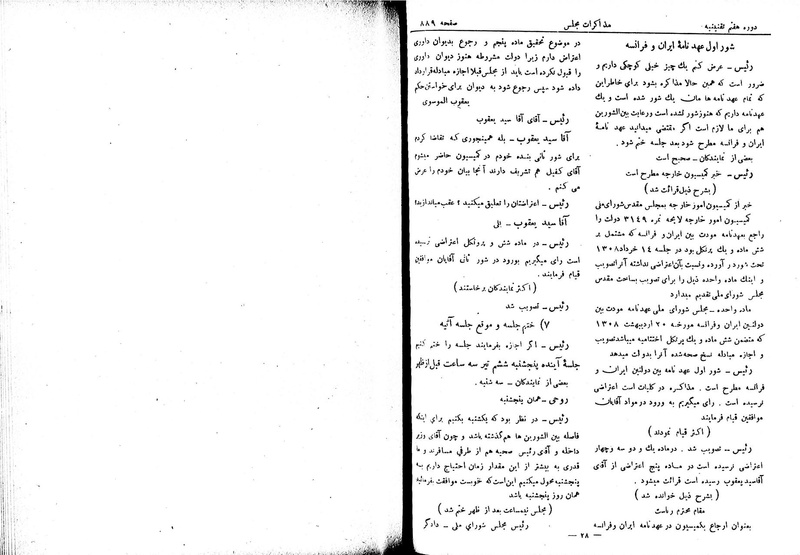 دوره هفتم تقنینیه
مذاکرات مجلس
صفحه ۸۸۹
شور اول عهدنامهٔ ایران و فرانسه
رئیس – عرض کنم یك چیز خیلی کوچکی داریم و
ضرور است که همین حالا مذاکره بشود برای خاطر این
که تمام عهدنامه ها مان یك شور شده است و یك
عهدنامه داریم که هنوز شور نشده است و رعایت بین الشورین
هم برای ما لازم است اگر مقتضی میدانید عهد نامهٔ
ایران و فرانسه مطرح شود بعد جلسه ختم شود .
بعضی از نمایندگان – صحیح است
رئیس – خبر کمیسیون خارجه مطرح است
( بشرح ذیل قرائت شد )
خبر از کمیسیون امور خارجه بمجلس مقدس شورای ملی
کمیسیون امور خارجه لایحه نمره ۳۱۴۹ دولت را
راجع بعهدنامه مودت بین ایران و فرانسه که مشتمل بر
شش ماده و یك پرتکل بود در جلسه ۱۴ خرداد ۱۳۰۸
تحت شور در آورده و نسبت بآن اعتراضی نداشته آنرا تصویب
و اینك ماده واحده ذیل را برای تصویب بساحت مقدس
مجلس شورای ملی تقدیم میدارد
ماده واحده – مجلس شورای ملی عهدنامه مودت بین
دولتین ایران و فرانسه مورخه ۲۰ اردیبهشت ۱۳۰۸
که متضمن شش ماده و یك پرتکل اختتامیه میباشد تصویب
و اجازه مبادله نسخ صحه شده آنرا بدولت میدهد
رئیس – شور اول عهد نامه بین دولتین ایران و
فرانسه مطرح است . مذاکره در کلیات است اعتراضی
نرسیده است . رای میگیریم به ورود در مواد آقایان
موافقین قیام فرمایند
( اکثر قیام نمودند )
رئیس – تصویب شد . در ماده یك و دو سه و چهار
اعتراضی نرسیده است در ماده پنج اعتراضی از آقای
آقا سید یعقوب رسیده است قرائت میشود .
( بشرح ذیل خوانده شد )
مقام محترم ریاست
بعنوان ارجاع بکمیسیون در عهدنامه ایران و فرانسه
در موضوع تحقیق ماده پنجم و رجوع بدیوان داوری
اعتراض دارم زیرا دولت مشروطه هنوز دیوان داوری
را قبول نکرده است باید از مجلس قبلا اجازه مبادله قرارداد
داده شود سپس رجوع شود به دیوان برای خواستن حکم
یعقوب الموسوی
رئیس – آقای آقا سید یعقوب
آقا سید یعقوب – بله همینجوری که تقاضا کردم
برای شور ثانی بنده خودم در کمیسیون حاضر میشوم
آقای کفیل هم تشریف دارند آنجا بیان خودم را عرض
می کنم .
رئیس – اعتراضتان را تعلیق میکنید ؟ عقب میاندازید؟
آقا سید یعقوب – بلی
رئیس – در ماده شش و پروتکل اعتراضی نرسیده
است رای میگیریم بورود در شور ثانی آقایان موافقین
قیام فرمایند .
( اکثر نمایندگان برخاستند )
رئیس – تصویب شد
۷) ختم جلسه و موقع جلسه آتیه
رئیس – اگر اجازه بفرمایند جلسه را ختم کنیم
جلسهٔ آینده پنجشنبه ششم تیر سه ساعت قبل از ظهر
بعضی از نمایندگان – سه شنبه .
روحی – همان پنجشنبه
رئیس – در نظر بود که یکشنبه بکنیم برای اینکه
فاصله بین الشورین ها هم گذشته باشد و چون آقای وزیر
داخله و آقای رئیس صحیه هم از طرفی مسافرند و ما
قدری به بیشتر از این مقدار زمان احتیاج داریم به
پنجشنبه محول میکنیم این است که خوبست موافقت بفرمائید
همان روز پنجشنبه باشد
( مجلس نیمساعت بعد از ظهر ختم شد )
رئیس مجلس شورای ملی – دادگر
– ۲۸ –